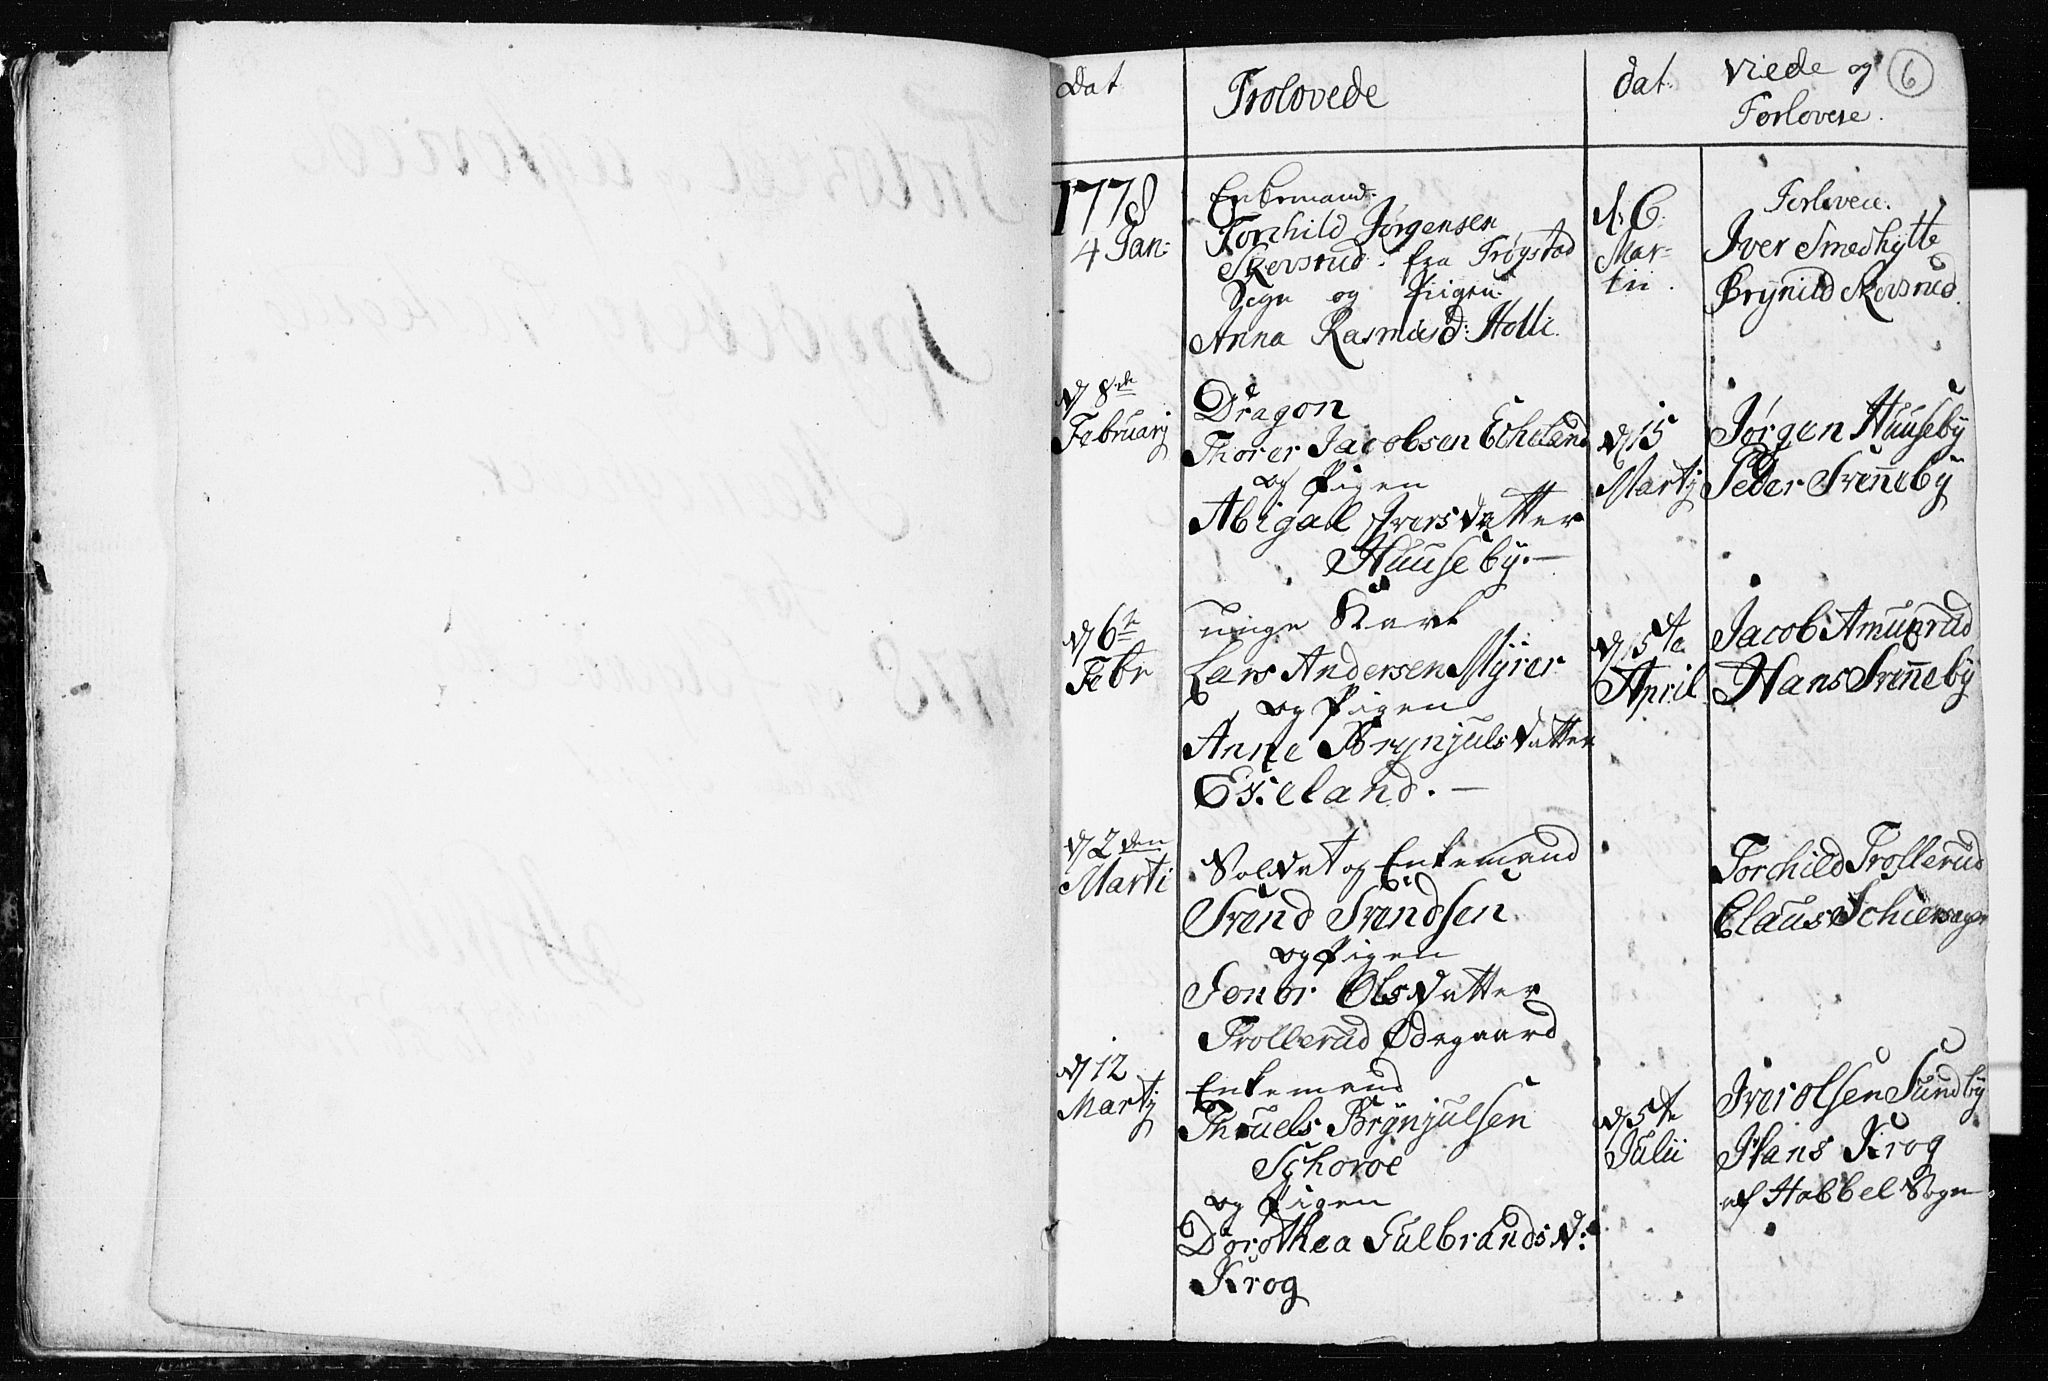 Dat
Trolovede
dat
Viede og
Forlovere.
6
1778
4 Jan:
Enkemand.
Torchild Jørgensen
Skovsrud. fra Trøgstad
Sogn og Piigen
Anna Rasmusd: Holli.
d: 6.
Mar-
tii.
Forlovere.
Iver Smedhytte
Brynild Skovsrud.
d 8de
Februarij
Dragon
Thorer Jacobsen Echeland
og Pigen
Abigal Iversdatter
Huuseby.—
d 15
Martij
Jørgen Huuseby
Peder Svenneby
d 6te
Febr
unge Karl
Lars Andersen Myrer
og Pigen
Anne Brynjulsdatter
Ekeland.—
d 5te
April
Jacob Amundrud
Hans Svenneby
d 2den
Marti
Soldat og Enkemand
Svend Svendsen
og Pigen
Olsdatter
Trollerud Ødegaard
Torchild Trollerud
Claus
d 12
Martij
Enkemand
Brynjulsen
og Pigen
Dorothea Gulbrandsd:
Krog
d 5te
Julii
Iver Olsen Sundby
Hans Krog
af Habbel Sogn